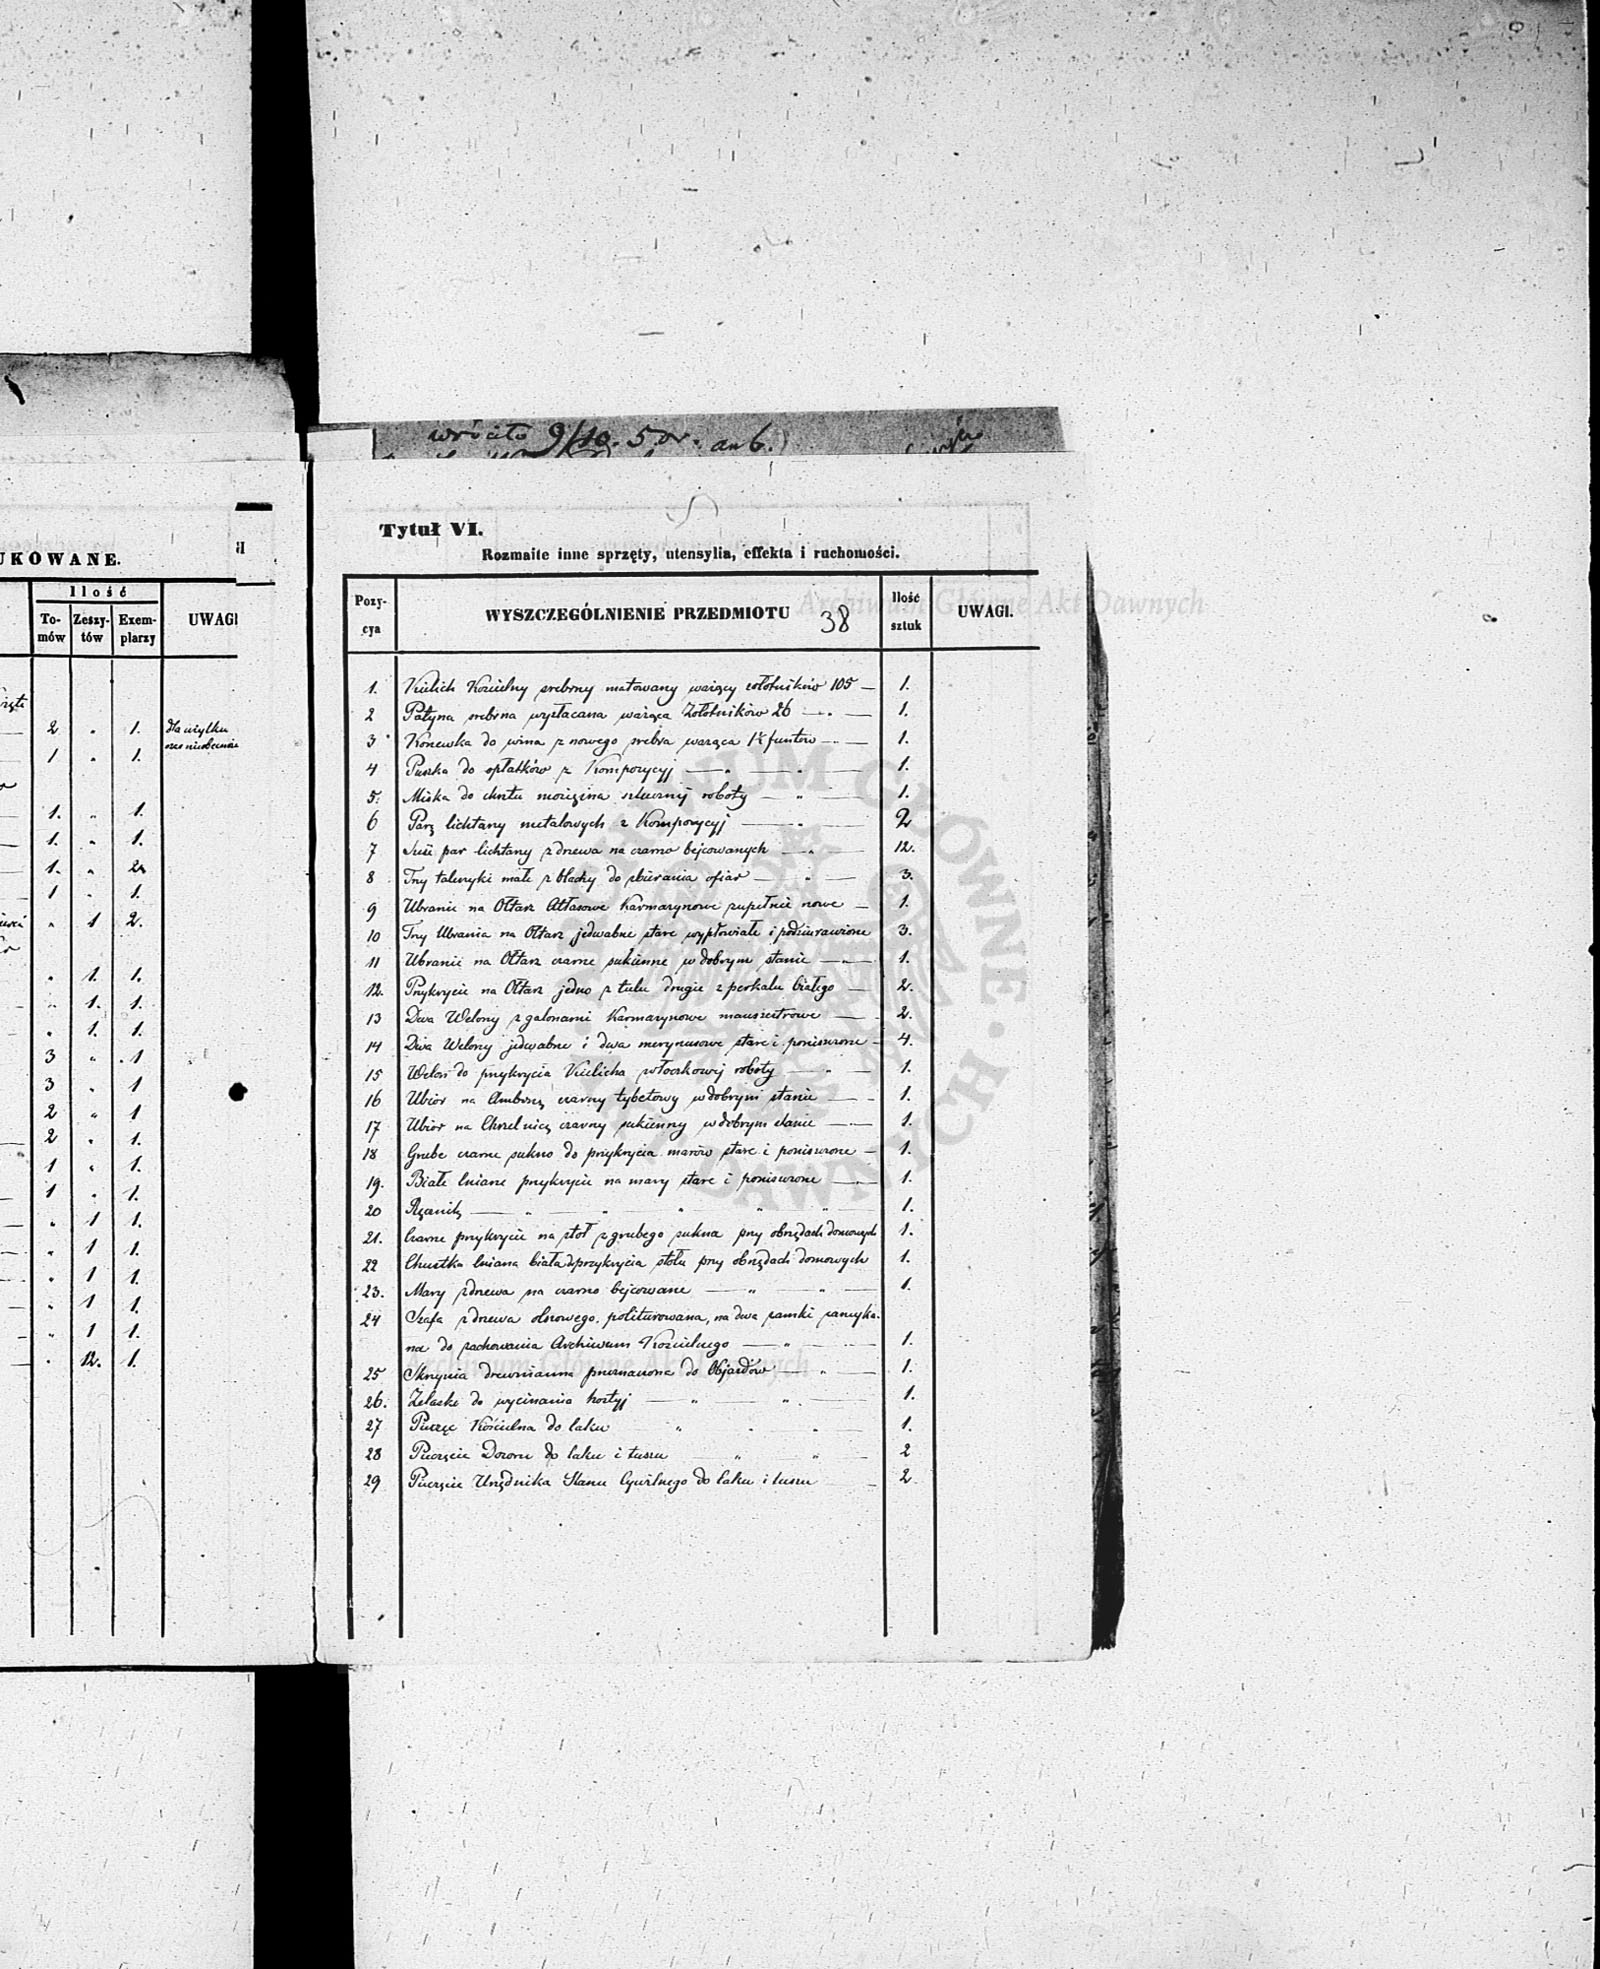 wróciło 9/10. 5 or. an 6.
UKOWANE.
Ilość
To-mów Zeszy-tów Exem-plarzy UWAGI
2 " 1. Dla użytku
1 " 1.
1. " 1.
1. " 1.
1. " 2
1 " 1.
" 1 2.
" 1. 1.
" 1. 1.
" 1. 1.
3 " 1
3 " 1
2 " 1
2 " 1.
1 " 1.
1 " 1.
" 1 1.
" 1 1.
" 1 1.
" 1 1.
" 1 1.
" 12. 1.
Tytuł VI.
Rozmaite inne sprzęty, utensylia, effekta i ruchomości.
Pozy-cya WYSZCZEGÓLNIENIE PRZEDMIOTU 38 Ilość sztuk UWAGI.
1. Kielich Kościelny srebrny matowany ważący zołotników 105 — 1.
2 Patyna srebrna wyzłacana ważąca Zołotników 26 — 1.
3 Konewka do wina z nowego srebra ważąca 1½ funtów — 1.
4 Puszka do opłatków z Kompozycyj — " — 1.
5. Miska do chrztu mosiężna sztucznej roboty — " — 1.
6 Parę lichtarzy metalowych z Kompozycyj — " — 2
7 Sześć par lichtarzy z drzewa na czarno bejcowanych — " — 12.
8 Trzy talerzyki małe z blachy do zbierania ofiar — " — 3.
9 Ubranie na Ołtarz Atłasowe Karmazynowe zupełnie nowe — 1.
10 Trzy Ubrania na Ołtarz jedwabne stare wypłowiałe i podziurawione 3.
11 Ubranie na Ołtarz czarne sukienne w dobrym stanie — " — 1.
12. Przykrycie na Ołtarz jedno z tulu drugie z perkalu białego — 2.
13 Dwa Welony z galonami Karmazynowe manszestrowe — 2.
14 Dwa Welony jedwabne i dwa merynusowe stare i poniszczone — 4.
15 Welon do przykrycia Kielicha włóczkowej roboty — " — 1.
16 Ubiór na Ambonę czarny tybetowy w dobrym stanie — 1.
17 Ubiór na Chrzelnicę czarny sukienny w dobrym stanie — 1.
18 Grube czarne sukno do przykrycia marów stare i poniszczone — 1.
19. Białe lniane przykrycie na mary stare i poniszczone — 1.
20 Ręcznik — " " " " " 1.
21. Czarne przykrycie na stół z grubego sukna przy obrzędach domowych 1.
22 Chustka lniana biała do przykrycia stołu przy obrzędach domowych 1.
23. Mary z drzewa na czarno bejcowane — " — " — 1.
24 Szafa z drzewa olszowego, politurowana, na dwa zamki zamyka-
na do zachowania Archiwum Kościelnego — " — 1.
25 Skrzynia drewnianna przeznaczona do Objazdów — " — 1.
26. Żelazko do wycinania hostyj — " — " — 1.
27 Pieczęć Kościelna do laku " " " 1.
28 Pieczęcie Dozoru do laku i tuszu " " 2
29 Pieczęcie Urzędnika Stanu Cywilnego do laku i tuszu — 2
Archiwum Główne Akt Dawnych
ARCHIWUM GŁÓWNE AKT DAWNYCH
Archiwum Główne Akt Dawnych